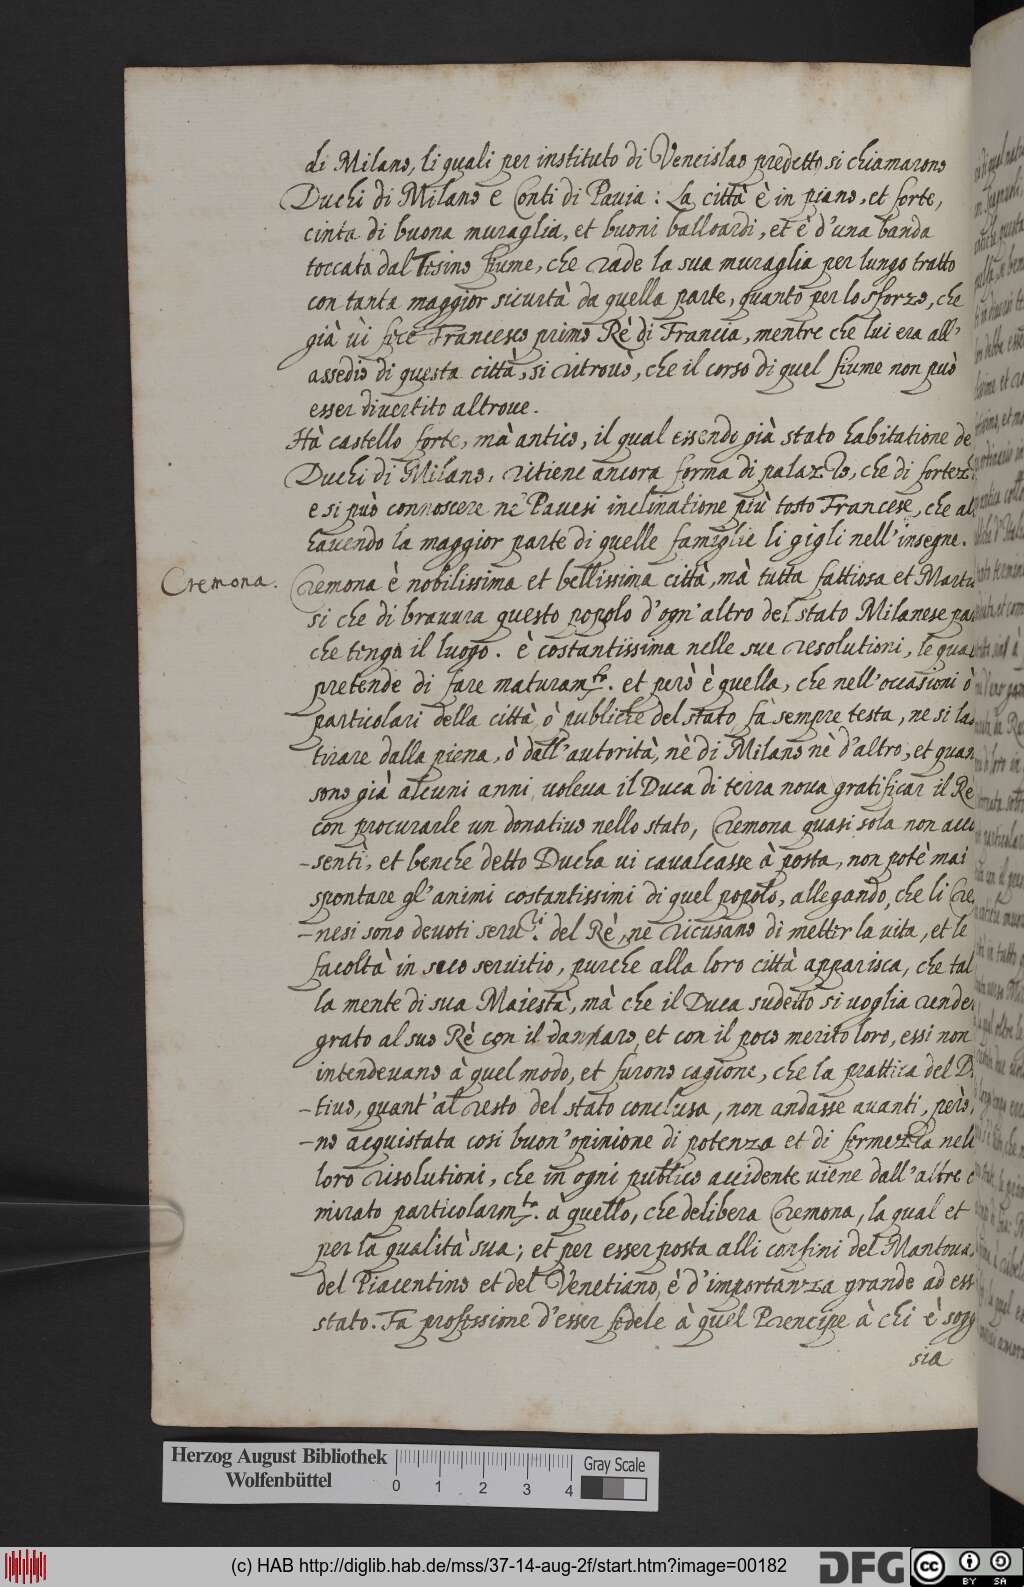 di Milano, li quali per instituto di Venceislao predetto si chiamarono
Duchi di Milano e Conti di Pavia: La città è in piano, et forte,
cinta di buona muraglia, et buoni balloardi, et è d'una banda
toccata dal Tesino fiume, che rade la sua muraglia per lungo tratto
con tanta maggior sicurtà da quella parte, quanto per lo sforzo, che
già ui fece Francesco primo Rè di Francia, mentre che lui era all'
assedio di questa città, si ritrouò, che il corso di quel fiume non può
esser diuertito altroue.
Hà castello forte, mà antico, il qual essendo già stato habitatione de
Duchi di Milano, ritiene ancora forma di palazzo, che di fortez
e si può connoscere ne Pauesi inclinatione più tosto Francese, che al
hauendo la maggior parte di quelle famiglie li gigli nell'insegne.
Cremona.
Cremona è nobilissima et bellissima città, mà tutta fattiosa et Martia
si che di brauura questo popolo d'ogn'altro del stato Milanese pa
che tenga il luogo. è costantissima nelle sue resolutioni, le qua
pretende di fare maturam.te et però è quella, che nell'occasioni ò
particolari della città ò publiche del stato fà sempre testa, ne si las
tirare dalla piena, ò dall'autorità, nè di Milano nè d'altro, et quan
sono già alcuni anni uoleua il Duca di terra noua gratificar il Re
con procurarle un donatiuo nello stato, Cremona quasi sola non acco
-sentì, et benche detto Ducha ui caualcasse à posta, non potè mai
spontare gl'animi costantissimi di quel popolo, allegando, che li Cre
-nesi sono deuoti seru.ri del Rè, ne ricusano di metter la uita, et le
facoltà in suo seruitio, purche alla loro città apparisca, che tal
la mente di sua Maiestà, mà che il Duca sudetto si uoglia render
grato al suo Rè con il dannaro, et con il poco merito loro, essi non
intendeuano à quel modo, et furono cagione, che la prattica del D
-tiuo, quant'al resto del stato conclusa, non andasse auanti, però,
-no acquistata cosi buon'opinione di potenza et di fermezza nell
loro risolutioni, che in ogni publico accidente uiene dall'altre
mirato particolarm.te à quello, che delibera Cremona, la qual et
per la qualità sua; et per esser posta alli confini del Mantoua
del Piacentino et del Venetiano, è d'importanza grande ad ess
stato. Fa professione d'esser fedele à quel Prencipe à chi è sogg
sia
Herzog August Bibliothek
Wolfenbüttel
0 1 2 3 4
Gray Scale
(c) HAB http://diglib.hab.de/mss/37-14-aug-2f/start.htm?image=00182
DFG
cc BY SA